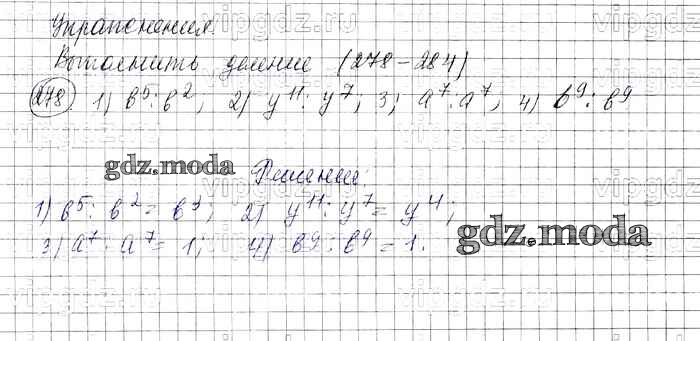 Упражнения
Выполнить деление (278-284)
278 1) b⁵ : b²; 2) y¹¹ : y⁷; 3) a⁷ : a⁷; 4) b⁹ : b⁹
gdz.moda
Решение:
1) b⁵ : b² = b³; 2) y¹¹ : y⁷ = y⁴;
3) a⁷ : a⁷ = 1; 4) b⁹ : b⁹ = 1.
gdz.moda
vipgdz.ru